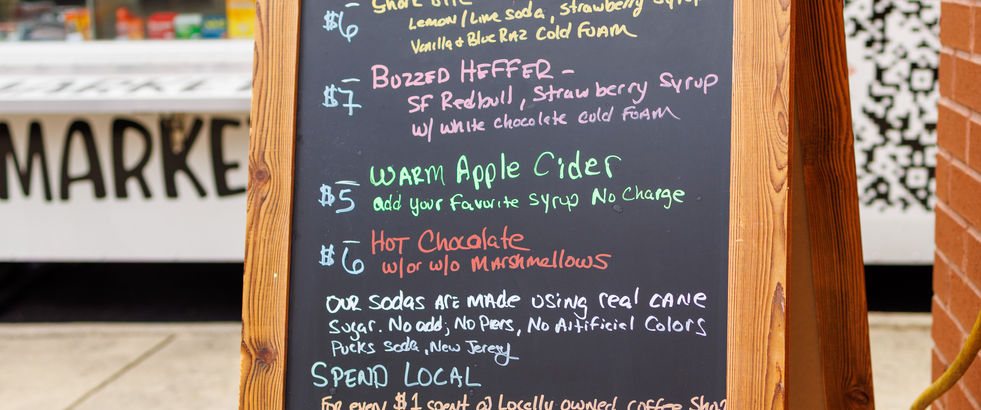 $6
Lemon/Lime soda, Strawberry Syrup
Vanilla & Blue RAZ Cold FOAM
BUZZED HEFFER -
$7
SF Redbull, Strawberry Syrup
w/ white chocolate cold FOAM
WARM Apple Cider
$5
add your favorite syrup No Charge
HOT Chocolate
$6
w/or w/o MARSHMELLOWS
OUR SODAS ARE MADE USING real CANE
Sugar. No add; No Pters, No Artificial Colors
Pucks Soda, New Jersey
SPEND LOCAL
For every $1 spent @ Locally owned coffee Shop
MARKE